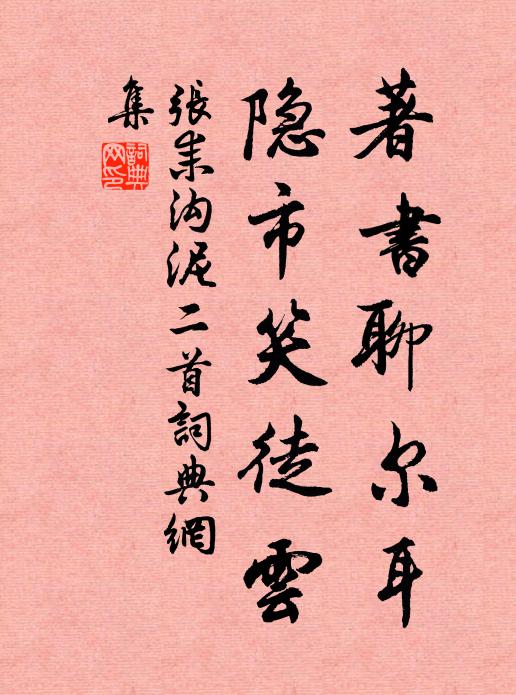 著書聊尔耳
隐市笑徒雲
張耒沟泥二首詞典網
集
詞典
网印